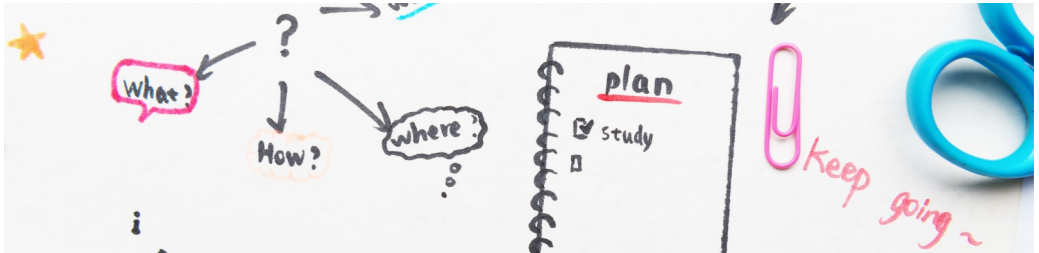 ?
What?
How?
where?
plan
study
Keep going~
i